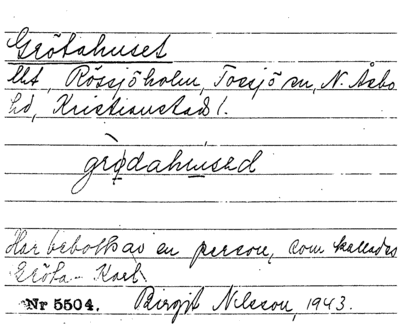 Grötahuset
lht, Rössjöholm, Tossjö sn, N. Åsbo
hd, Kristianstads l.
grödahused
Har bebotts av en person, som kallades
Gröta-Karl
Nr 5504. Birgit Nilsson, 1943.